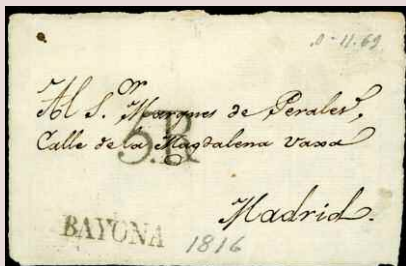 0-11.69
Al S.ᵒʳ Marques de Perales,
5.R
Calle de la Magdalena vaxa
Madrid.
BAYONA
1816